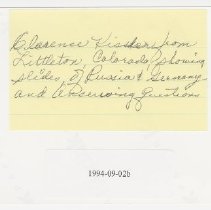 Clarence Kissler from
Littleton, Colorado, showing
slides of Russia & Germany
and answering questions
1994-09-02b